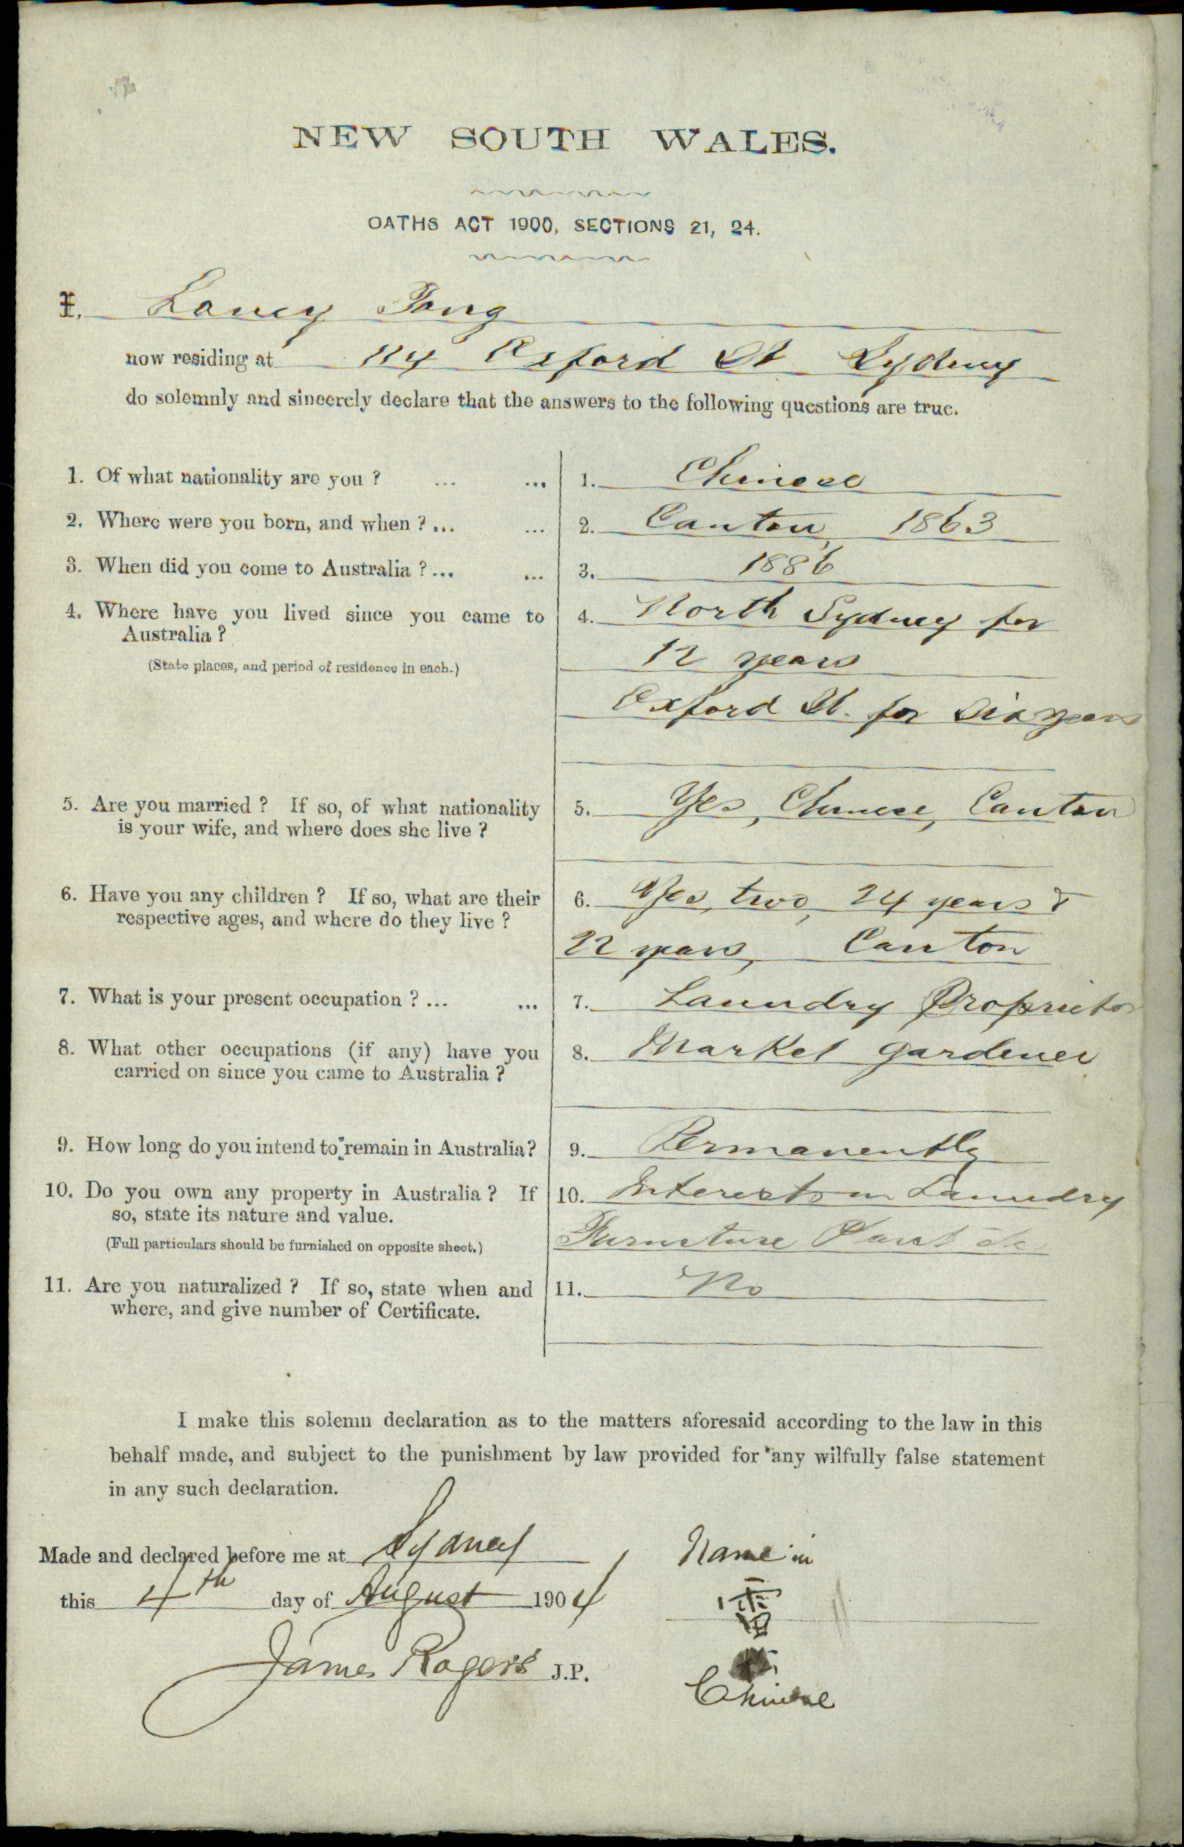 NEW SOUTH WALES.
OATHS ACT 1900, SECTIONS 21, 24.
I, Loney Tong
now residing at 114 Oxford St Sydney
do solemnly and sincerely declare that the answers to the following questions are true.
1. Of what nationality are you ? ... ... 1. Chinese
2. Where were you born, and when ? ... ... 2. Canton, 1863
3. When did you come to Australia ? ... ... 3. 1886
4. Where have you lived since you came to 4. North Sydney for
Australia ?
(State places, and period of residence in each.) 12 years
Oxford St. for six years
5. Are you married ? If so, of what nationality 5. Yes, Chinese, Canton
is your wife, and where does she live ?
6. Have you any children ? If so, what are their 6. Yes, two, 24 years &
respective ages, and where do they live ?
22 years, Canton
7. What is your present occupation ? ... ... 7. Laundry Proprietor
8. What other occupations (if any) have you 8. Market gardener
carried on since you came to Australia ?
9. How long do you intend to remain in Australia? 9. Permanently
10. Do you own any property in Australia ? If 10. Interests in Laundry
so, state its nature and value.
(Full particulars should be furnished on opposite sheet.) Furniture Plant &c
11. Are you naturalized ? If so, state when and 11. No
where, and give number of Certificate.
I make this solemn declaration as to the matters aforesaid according to the law in this
behalf made, and subject to the punishment by law provided for any wilfully false statement
in any such declaration.
Made and declared before me at Sydney
this 4th day of August 1904
James Rogers J.P.
Name in
Chinese